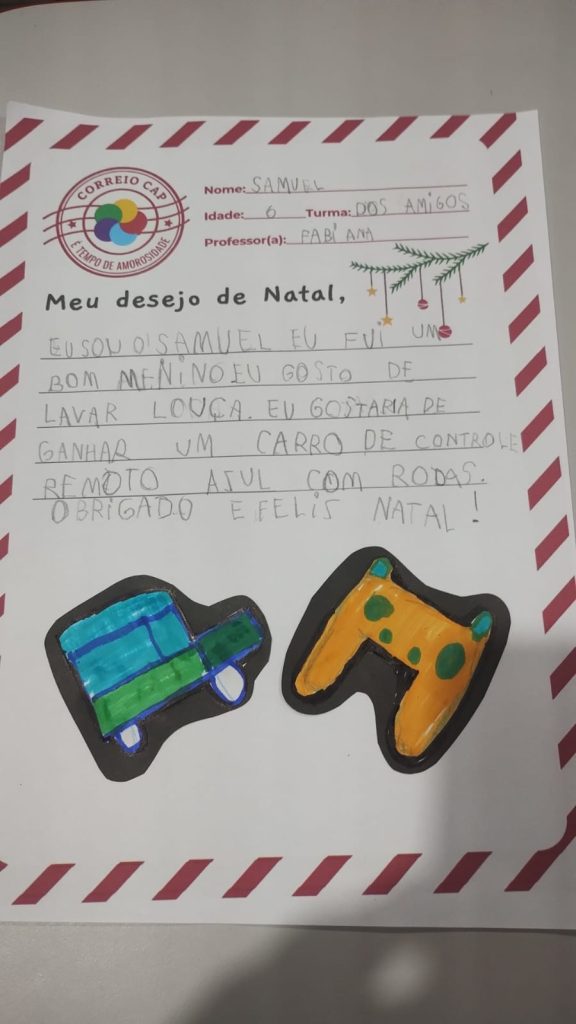 CORREIO CAP
É TEMPO DE AMOROSIDADE
Nome: SAMUEL
Idade: 6 Turma: DOS AMIGOS
Professor(a): FABIANA
Meu desejo de Natal,
EU SOU O SAMUEL EU FUI UM
BOM MENINO EU GOSTO DE
LAVAR LOUÇA. EU GOSTARIA DE
GANHAR UM CARRO DE CONTROLE
REMOTO ASUL COM RODAS.
OBRIGADO E FELIS NATAL!